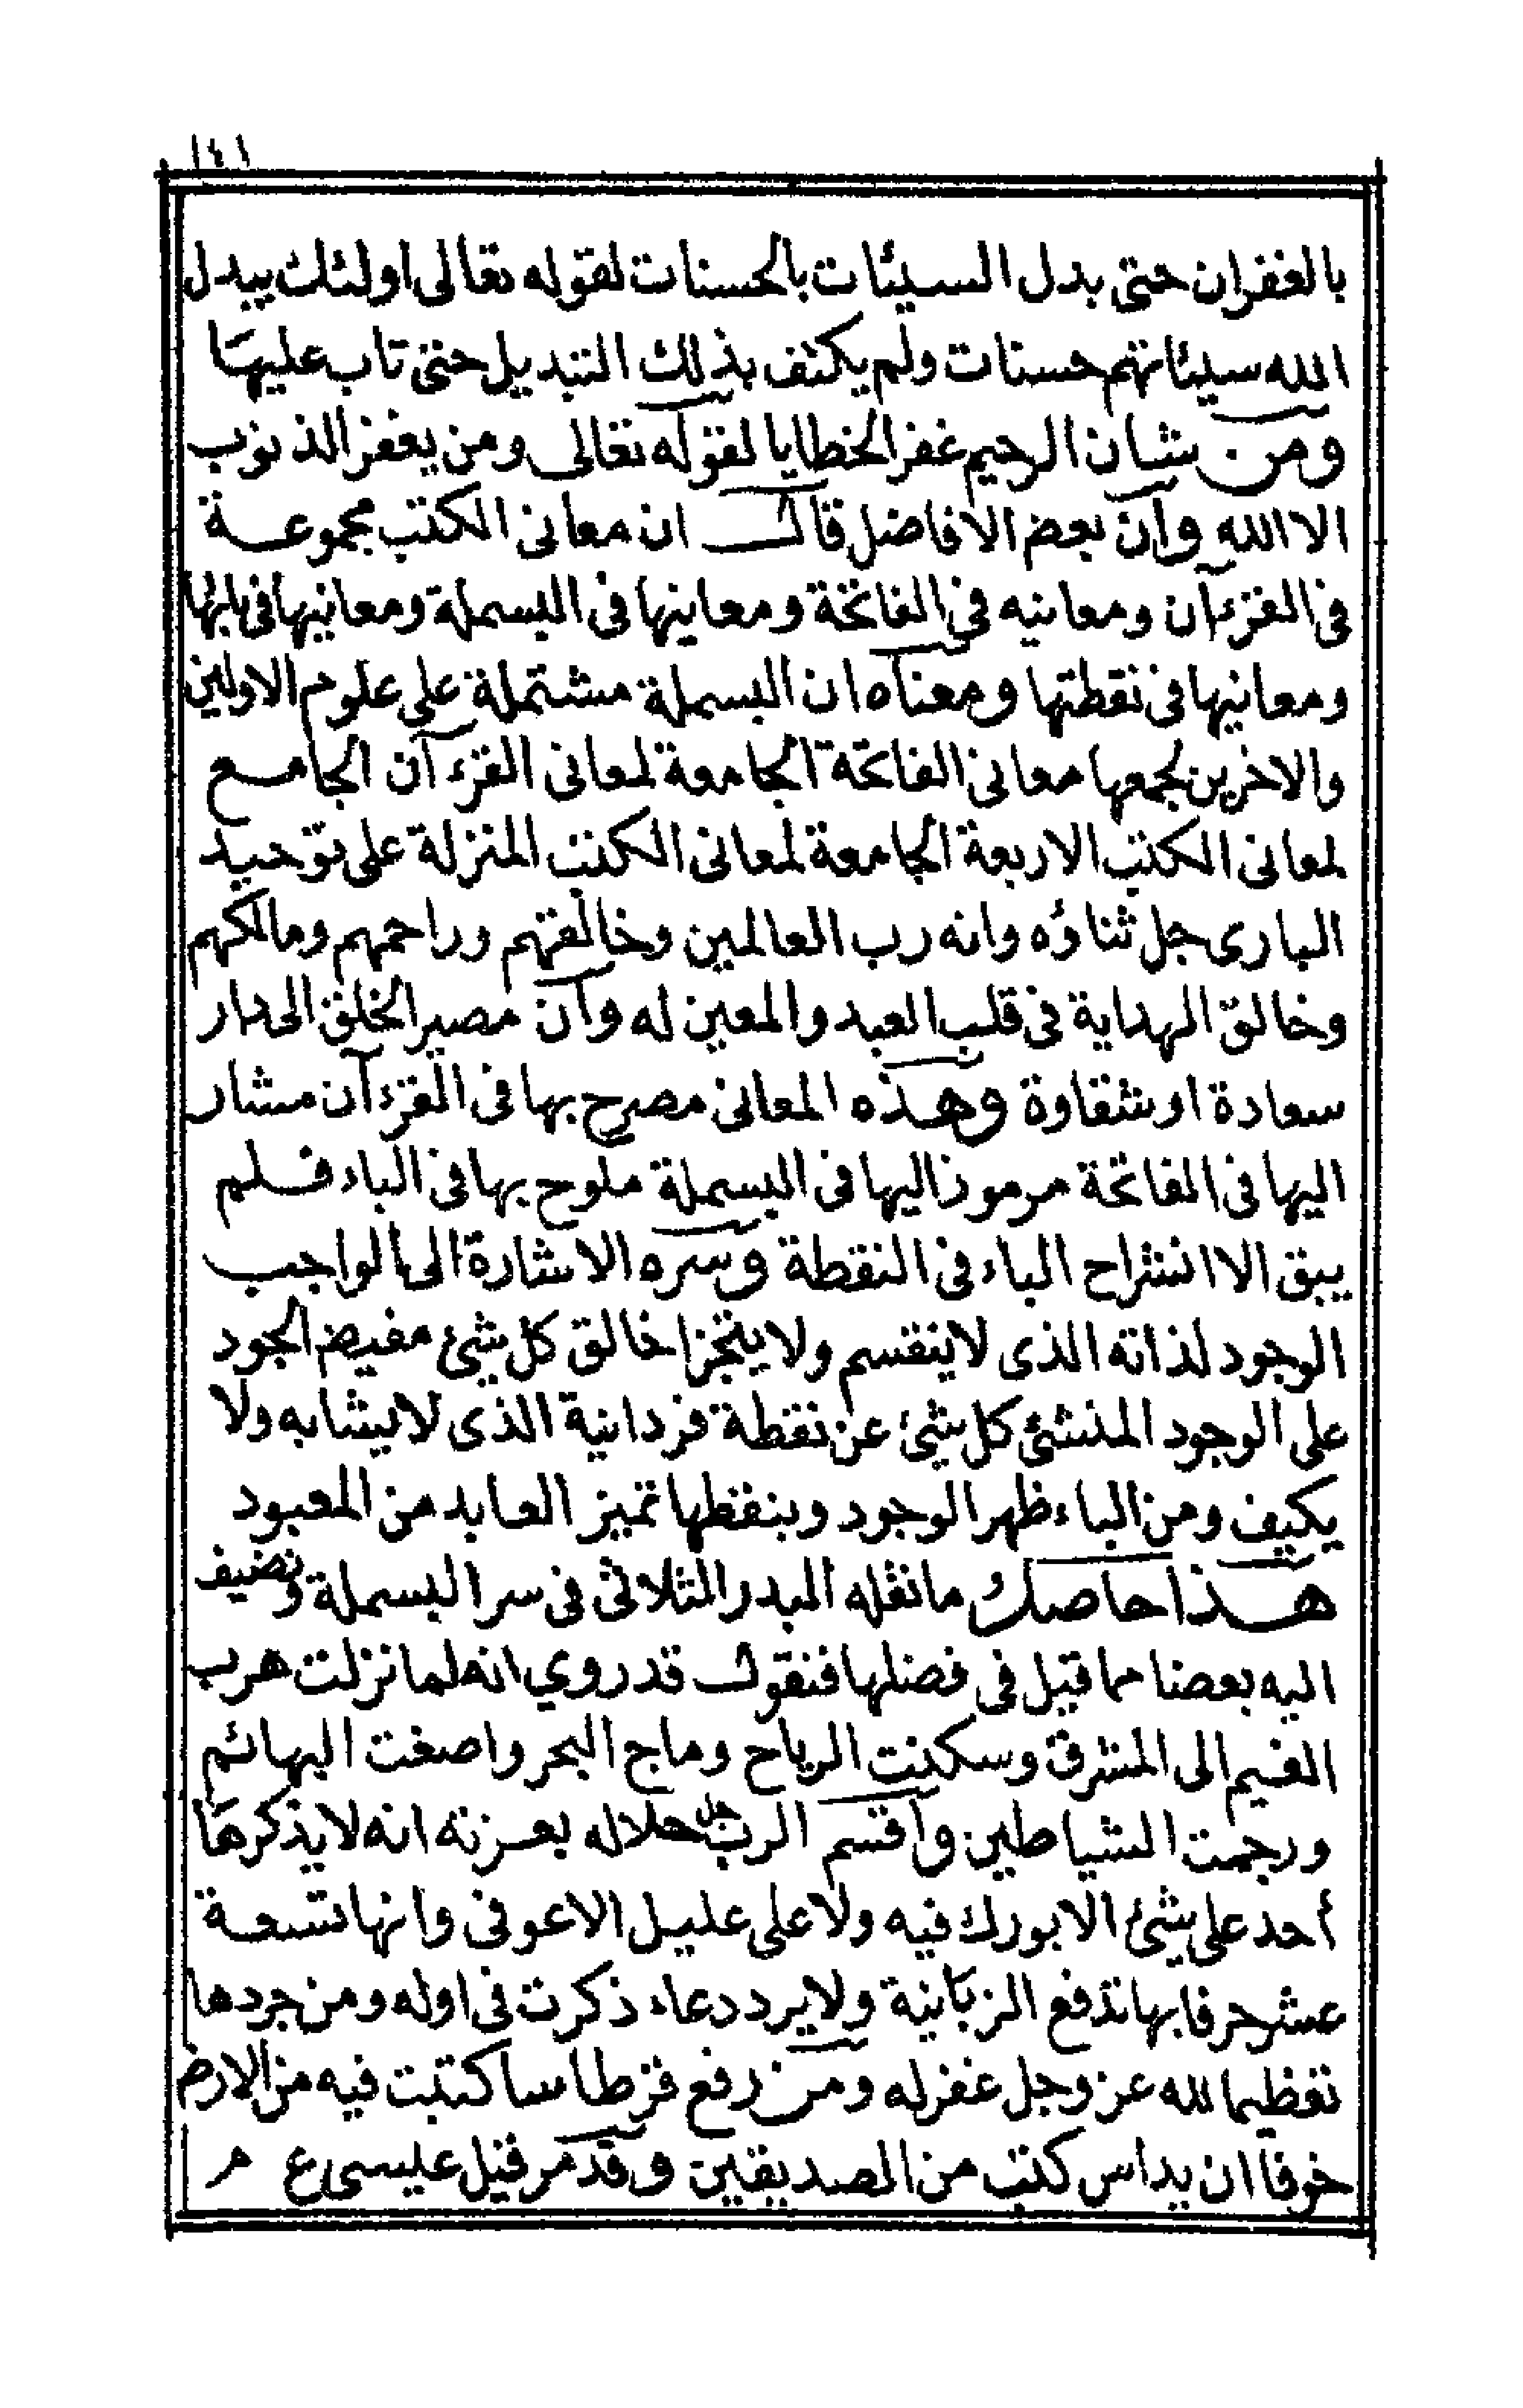 ١٤١
بالغفران حتى بدل السيئات بالحسنات لقوله تعالى اولئك يبدل
الله سيئاتهم حسنات ولم يكتف بذلك التبديل حتى تاب عليها
ومن شان الرحيم غفر الخطايا لقوله تعالى ومن يغفر الذنوب
الا الله وان بعض الافاضل قال ان معانى الكتب مجموعة
فى القرءان ومعانيه فى الفاتحة ومعاينها فى البسملة ومعانيها فى بائها
ومعانيها فى نقطتها ومعناه ان البسملة مشتملة على علوم الاولين
والاخرين لجمعها معانى الفاتحة الجامعة لمعانى القرءآن الجامع
لمعانى الكتب الاربعة الجامعة لمعانى الكتب المنزلة على توحيد
البارى جل ثناؤه وانه رب العالمين وخالقهم وراحمهم ومالكهم
وخالق الهداية فى قلب العبد والمعين له وان مصير الخلق الى دار
سعادة او شقاوة وهذه المعانى مصرح بها فى القرءآن مشار
اليها فى الفاتحة مرموز اليها فى البسملة ملوح بها فى الباء فلم
يبق الا انشراح الباء فى النقطة وسره الاشارة الى الواجب
الوجود لذاته الذى لا ينقسم ولا يتجزا خالق كل شئ مفيض الجود
على الوجود المنشئ كل شئ عن نقطة فردانية الذى لا يشابه ولا
يكيف ومن الباء ظهر الوجود وبنقطها تميز العابد من المعبود
هذا حاصل مانقله البدر التلاتى فى سر البسملة ونضيف
اليه بعضا مما قيل فى فضلها فنقول قد روي انه لما نزلت هرب
الغيم الى المشرق وسكنت الرياح وماج البحر واصغت البهائم
ورجمت الشياطين وأقسم الرب جل جلاله بعزته انه لا يذكرها
أحد على شئ الا بورك فيه ولا على عليل الا عوفى وانها تسعة
عشر حرفا بها تدفع الزبانية ولا يرد دعاء ذكرت فى اوله ومن جردها
تعظيما لله عز وجل غفر له ومن رفع قرطاسا كتبت فيه من الارض
خوفا ان يداس كتب من الصديقين وقد مر قيل عليسى ع م